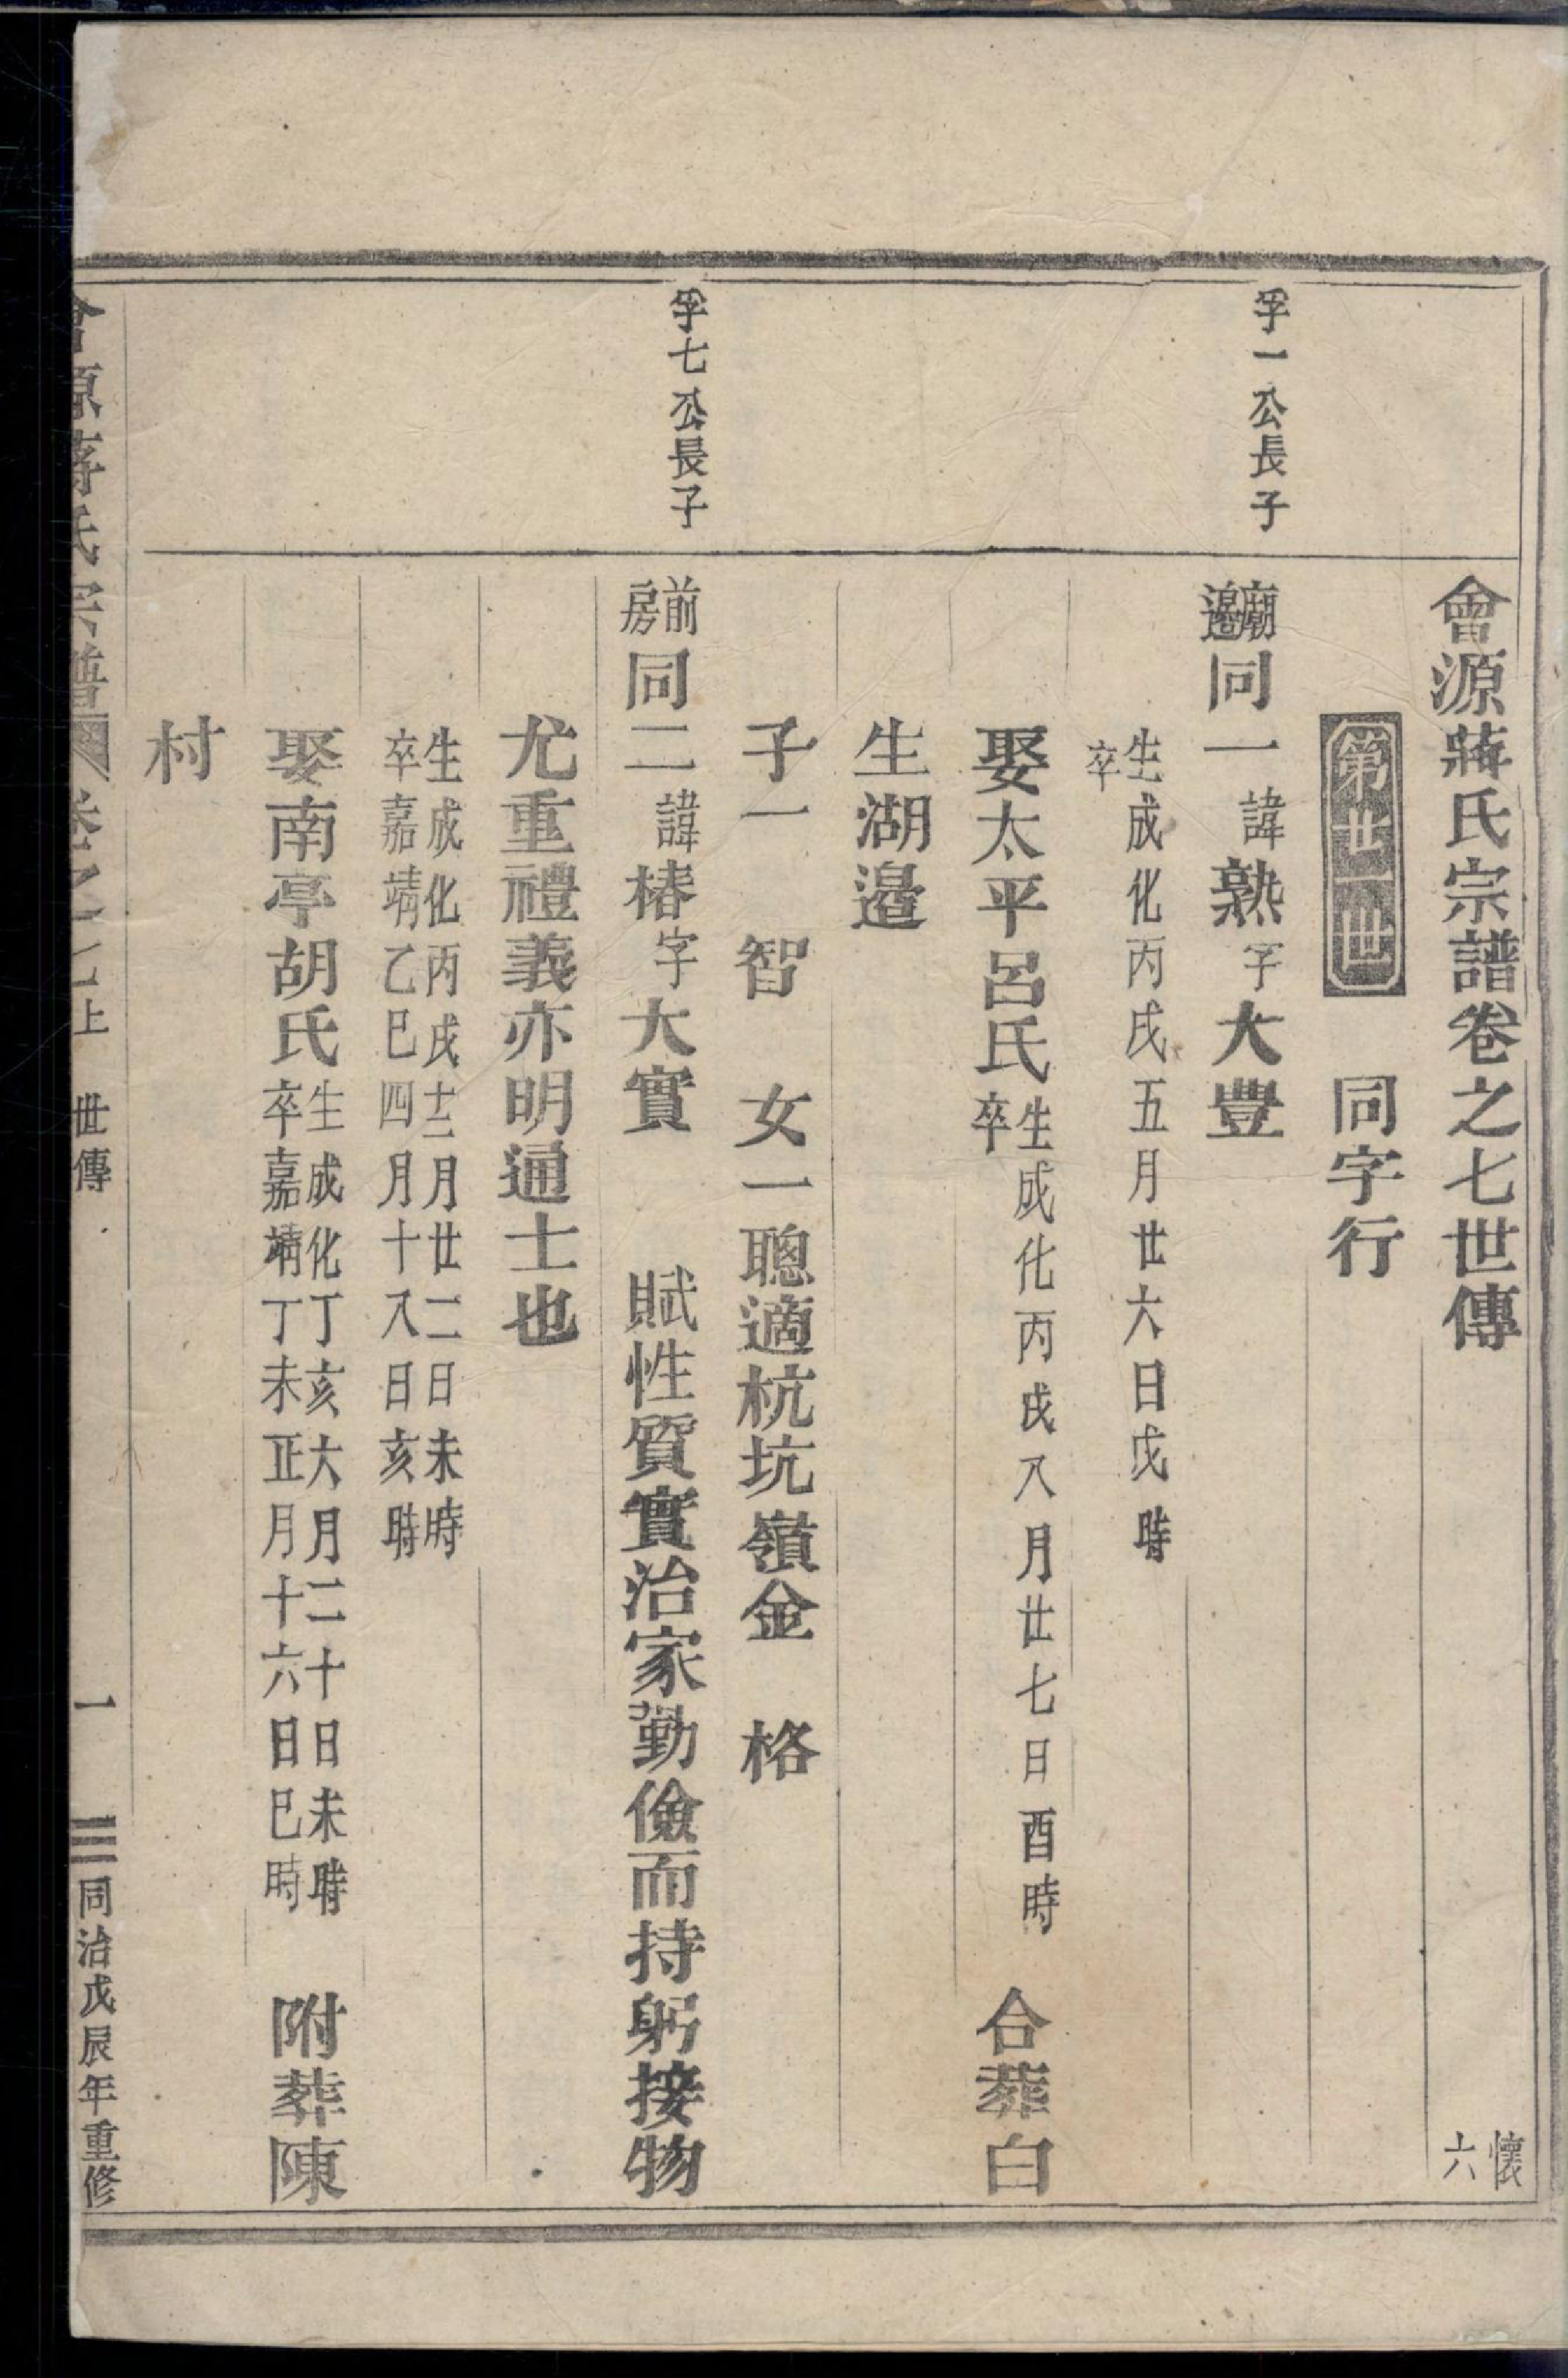 會源蔣氏宗譜卷之七世傳
懷
六
第廿一世
同字行
孚一公長子
廟邊同一諱熟字大豐
生成化丙戌五月廿六日戌時
卒
娶太平呂氏
生成化丙戌八月廿七日酉時
卒
合葬白
生湖邉
子一 智 女一聰適杭坑嶺金 格
孚七公長子
前房同二諱椿字大實 賦性質實治家勤儉而持躬接物
尤重禮義亦明通士也
生成化丙戌十二月廿二日未時
卒嘉靖乙巳四月十八日亥時
娶南亭胡氏
生成化丁亥六月二十日未時
卒嘉靖丁未正月十六日巳時
附葬陳
村
會源蔣氏宗譜 卷之七上 世傳 一 同治戊辰年重修